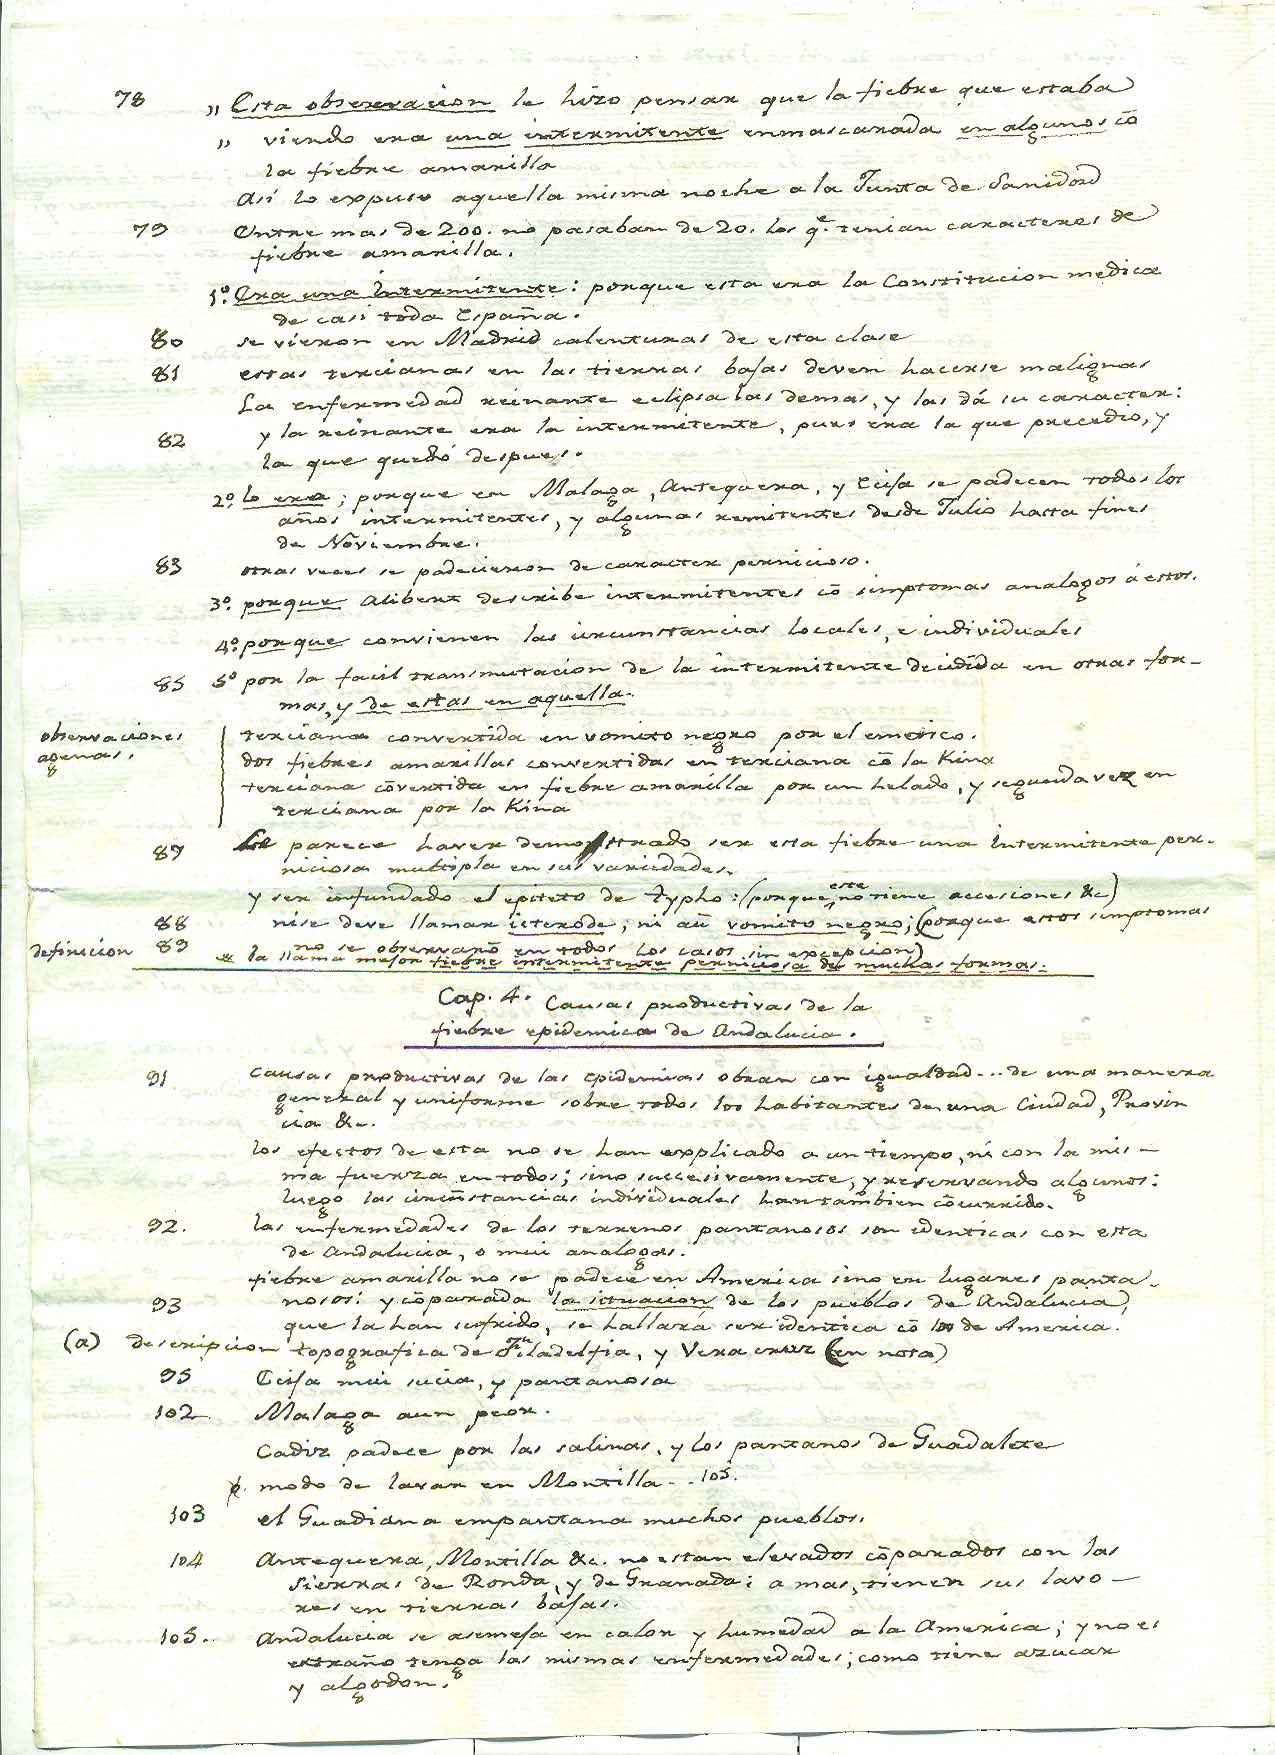 78 „ Esta observacion le hizo pensar que la fiebre que estaba
„ viendo era una intermitente enmascarada en algunos cō
la fiebre amarilla
Asi lo expuso aquella misma noche a la Junta de Sanidad
79 Entre mas de 200. no pasaban de 20. los q.e tenian caracteres de
fiebre amarilla.
1º. Era una intermitente: porque esta era la Constitucion medica
de casi toda España.
80 se vieron en Madrid calenturas de esta clase
81 estas tercianas en las tierras bajas deven hacerse malignas
La enfermedad reinante eclipsa las demas, y las dá su caracter:
82 y la reinante era la intermitente, pues era la que precedio, y
la que quedó despues.
2º. lo era; porque en Malaga, Antequera, y Ecija se padecen todos los
años intermitentes, y algunas remitentes desde Julio hasta fines
de Noviembre.
83 otras veces se padecieron de caracter pernicioso.
3º. porque Alibert describe intermitentes cō simptomas analogos á estos.
4º. porque convienen las circunstancias locales, e individuales
85 5º por la facil transmutacion de la intermitente decidida en otras for-
mas, y de estas en aquella.
observaciones
agenas.
terciana convertida en vomito negro por el emetico.
dos fiebres amarillas convertidas en terciana cō la Kina
terciana cōvertida en fiebre amarilla por un helado, y segunda vez en
terciana por la Kina
87 Le parece haver demostrado ser esta fiebre una intermitente per-
niciosa multipla en sus variedades.
y ser infundado el epiteto de typho: (porque este no tiene accesiones &c)
88 ni se deve llamar icterode, ni aū vomito negro; (porque estos simptomas
no se observarō en todos los casos sin excepcion)
definicion 89 la llama mejor fiebre intermitente perniciosa de muchas formas.
Cap. 4. Causas productivas de la
fiebre epidemica de Andalucia.
91 Causas productivas de las epidemias obran con igualdad... de una manera
general y uniforme sobre todos los habitantes de una Ciudad, Provin
cia &c.
los efectos de esta no se han explicado a un tiempo, ni con la mis-
ma fuerza en todos; sino succesivamente, y reservando algunos:
luego las circūstancias individuales han tambien cōcurrido.
92. las enfermedades de los terrenos pantanosos son identicas con esta
de Andalucia, o mui analogas.
fiebre amarilla no se padece en America sino en lugares panta-
93 nosos: y cōparada la situacion de los pueblos de Andalucia,
que la han sufrido, se hallará ser identica cō los de America.
(a) descripcion topografica de Filadelfia, y Vera cruz (en nota)
95 Ecija mui sucia, y pantanosa
102 Malaga aun peor.
Cadiz padece por las salinas, y los pantanos de Guadalete
modo de lavar en Montilla.. 105.
103 el Guadiana empantana muchos pueblos.
104 Antequera, Montilla &c. no estan elevados cōparados con las
sierras de Ronda, y de Granada; a mas, tienen sus lavo-
res en tierras bajas.
105.. Andalucia se asemeja en calor y humedad a la America; y no es
extraño tenga las mismas enfermedades; como tiene azucar
y algodon.